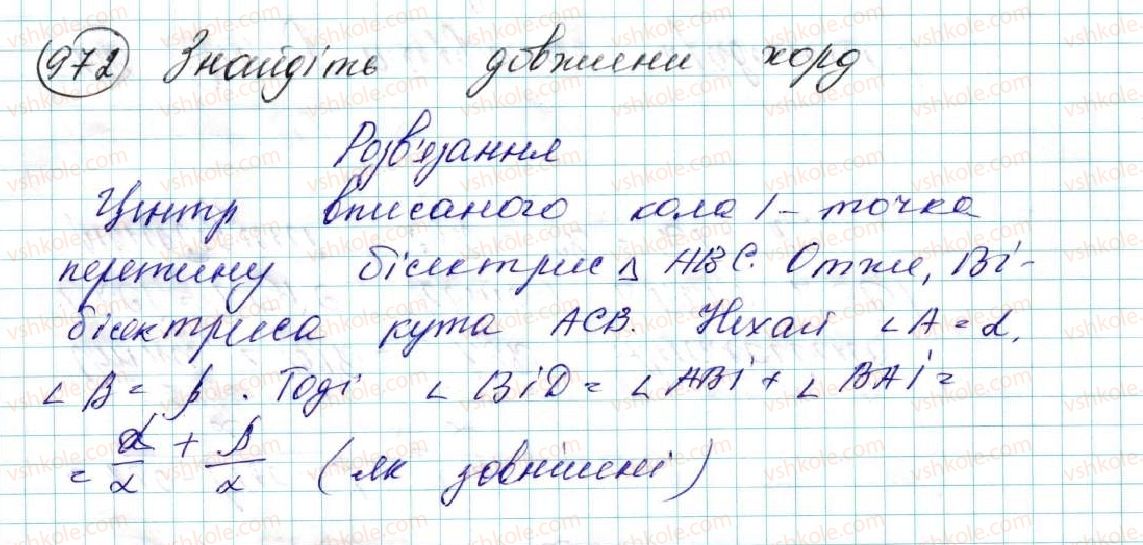 972 Знайдіть довжини хорд
Розв'язання
Центр вписаного кола І - точка
перетину бісектрис △ АВС. Отже, Ві -
бісектриса кута АСВ. Нехай ∠A = α,
∠B = β. Тоді ∠BiD = ∠ABi + ∠BAi =
= α/2 + β/2 (як зовнішні)